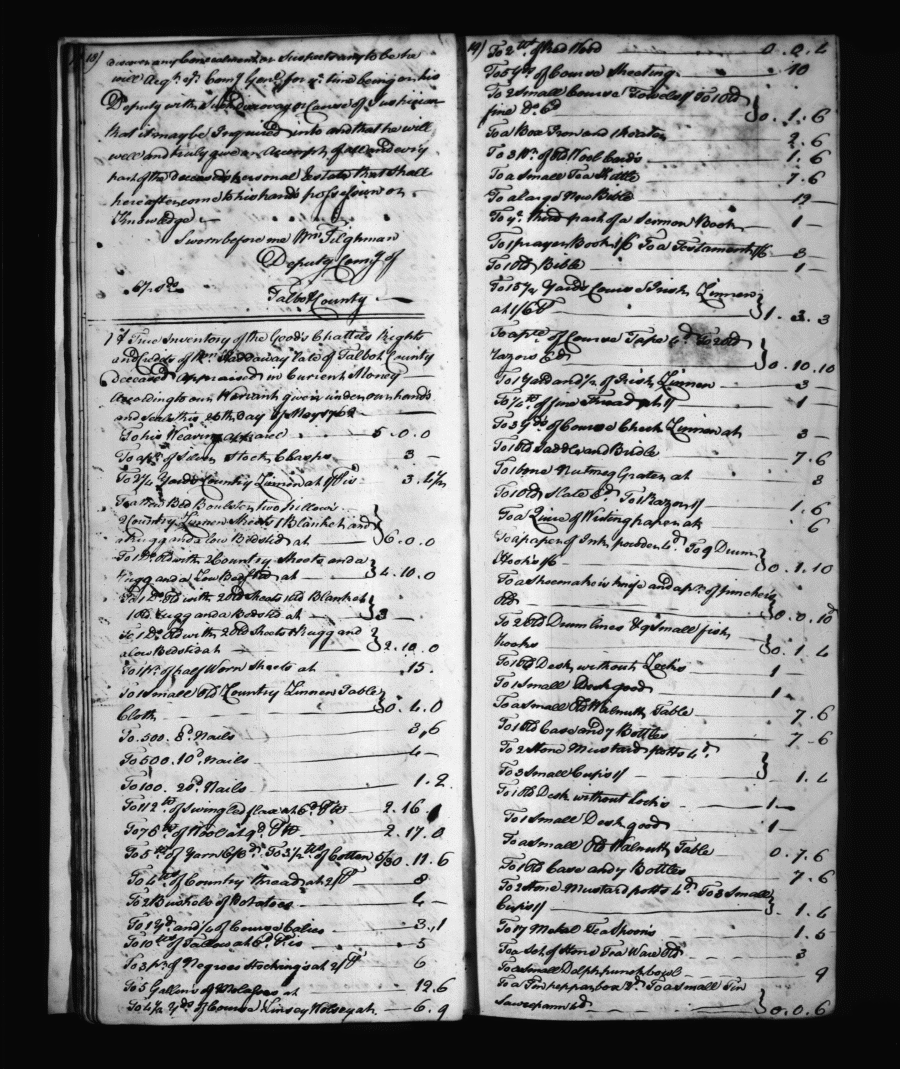 18)
discover any Concealment or Suspects any to be he
will Acq.t ye Com.y Gen.l for ye time being or his
Deputy with such discovery or Cause of Suspicion
that it may be Inquired into and that he will
well and truly give an Accompt of all and every
part of the deceaseds personal Estate that shall
hereafter come to his hands possession or
Knowledge
Sworn before me Wm Tilghman
Deputy Comy of
Talbot County
A True Inventory of the Goods Chattels Rights
and Credits of late of Talbot County
deceased Appraised in Current Money
According to our Warrant given under our hands
and seals this 26th Day of May 1762
To his Wearing Apparel 5.0.0
To a pr. of Silver Stock Clasps 3 -
To 2¼ Yards Country Linnen at 3.4½
Bed Boulster two pillows
2 Country Linnen Sheets 1 Blanket and
a Rugg and a low Bedsted at } 6.0.0
To 1 Do. Old with 2 Country Sheets and a
Rugg and a Low Bedsted at } 4.10.0
To 1 Do. Old with 2 Old Sheets 1 Old Blanket
1 Old Rugg and a Bedsted at } 3
To 1 Do. Old with 2 Old Sheets 1 Rugg and
a Low Bedsted at } 2.10.0
To 1 Pr. of half Worn Sheets at .15.
To 1 Small Old Country Linnen Table
Cloth } 0.4.0
To 500. 8d. Nails 3,6
To 500. 10d. Nails 4 -
To 100. 20d. Nails 1.2
To 112 lb. of Swingled flax at 6d. P lb 2.16
To 76 lb. of Wool at 9d. P lb 2.17.0
To 5 lb. of Yarn To 3½ lb. of Cotton 5/3 0.11.6
To 4 lb. of Country thread at 2/ P 8
To 2 Bushels of Potatoes 4 -
To 1 Yd. and ¼ of Course Calico 3.,1
To 10 lb. of Tallow at 6d. P lb 5
To 3 pr. of Negroes Stockings at 2/ P 6
To 5 Gallons of Molasses at 12.6
To 4½ Yds. of Course Linsey Wolsey at 6.9
19) To 2 lb. of Red Wood 0.0.4
To 5 Yds of Course Sheeting 10
To 2 Small Course Towels To 1 Old
fine Do. 6d } 0.1.6
To a Box Iron and Heater 2.6
To 3 Pr. of Old Wool Cards 1.6
To a Small Tea Kettle 7.6
To a large New Bible 12 -
To ye third part of a Sermon Book 1 -
To 1 prayer Book 1/6 To a Testament 1/6 3 -
To 1 Old Bible 1 -
To 15½ Yards Course Irish Linnen
at 1/6 P } 1.3.3
To a pce of Course Tape 4d. To 2 Old
Razors 6d } 0.10.10
To 1 Yard and ½ of Irish Linnen 3 -
To ¼ lb. of fine Thread at 1/ 1 -
To 3 Yds of Course Check Linnen at 3 -
To 1 Old Saddle and Bridle 7.6
To 1 bone Nutmeg Grater at 8
To 1 Old Slate 6d. To 1 Razor 1/ 1.6
To a Quire of Writing paper at 6
To a paper of Ink powder 4d. To 9 Drum
Hooks 1/6 } 0.1.10
To a Shoemakers knife and a pr. of pinchers
Old } 0.0.10
To 2 Old Drum lines & 9 Small fish
hooks } 0.1.4
To 1 Old Desk without Locks 1 -
To 1 Small Desk good 1 -
To a Small Old Walnutt Table 7.6
To 1 Old Case and 7 Bottles 7.6
To 2 Stone Mustard potts 4d.
To 3 Small Cups 1/ } 1.4
To 1 Old Desk without Locks 1 -
To 1 Small Desk good 1 -
To a Small Old Walnutt Table 0.7.6
To 1 Old Case and 7 Bottles 7.6
To 2 Stone Mustard potts 4d. To 3 Small
Cups 1/ } .1.4
To 17 Metal Tea Spoons 1.5
To a Set of Stone Tea Ware Old 3
To a Small Delph punch bowl 9
To a Tin pepper box 2d. To a Small Tin
Saucepann 4d } 0.0.6